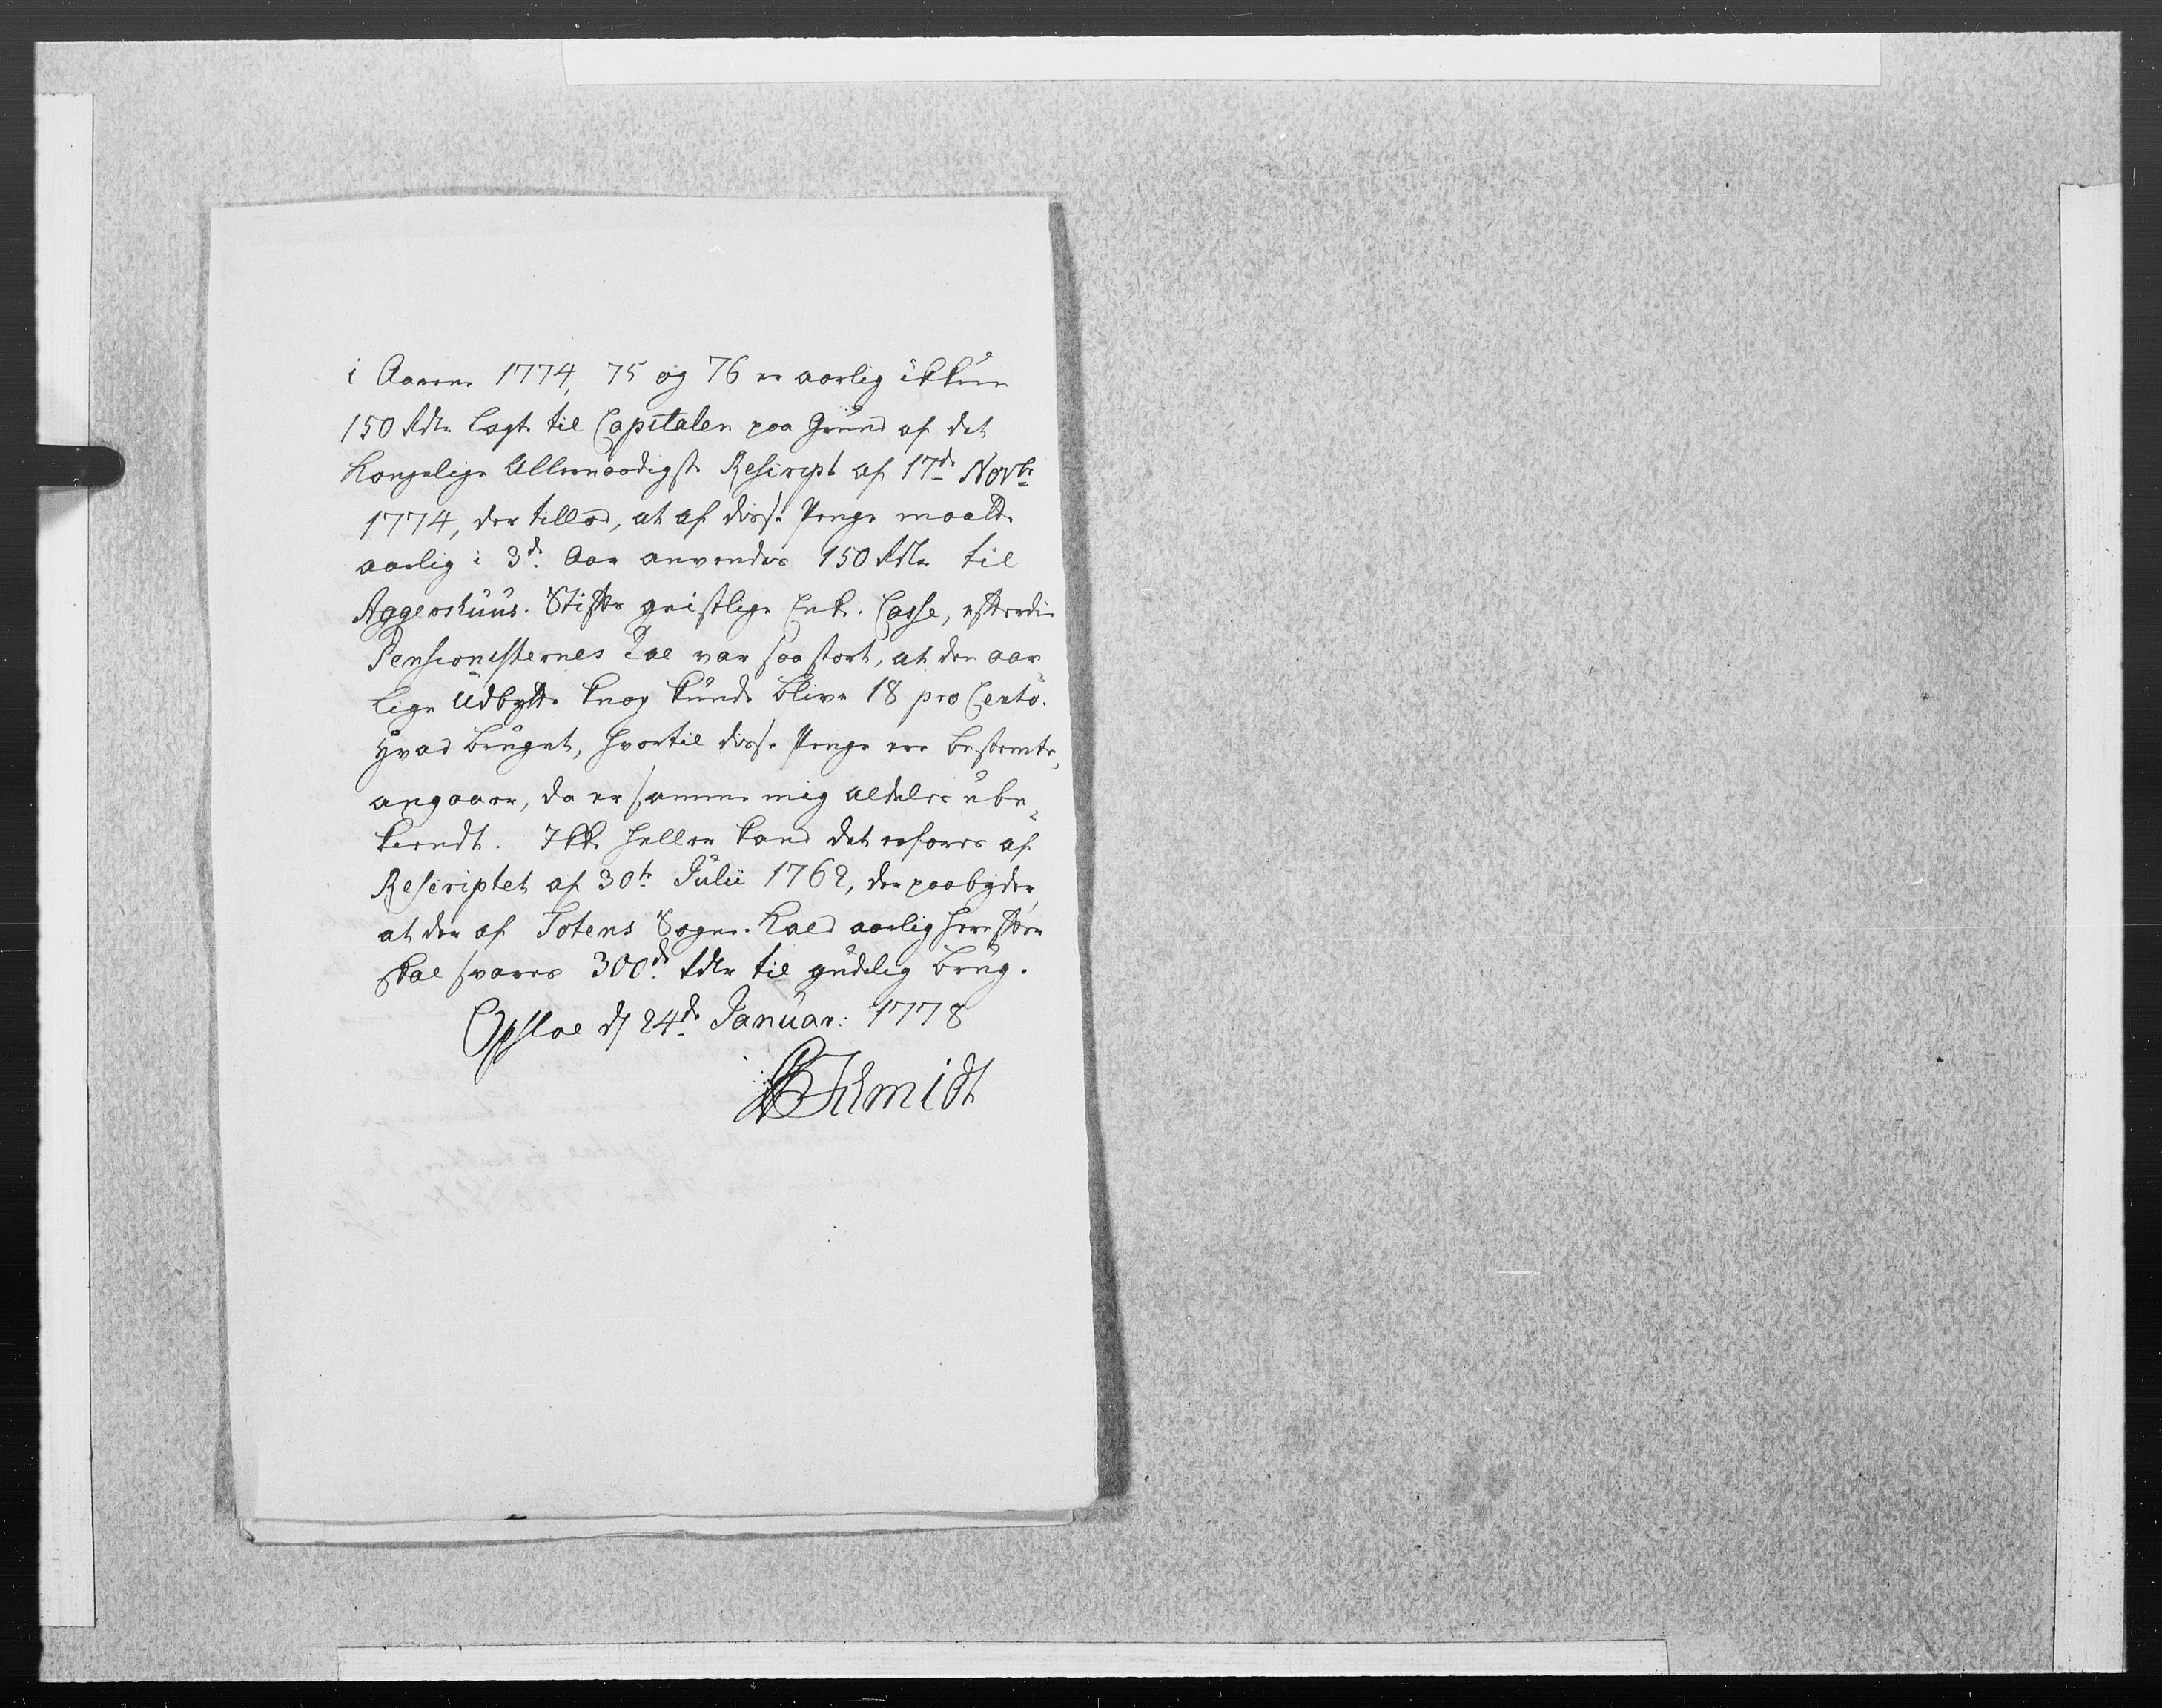 i Aarene 1774, 75 og 76 er aarlig ikkun
150 Rdlr lagt til Capitalen paa Grund af det
Kongelige Allernaadigste Rescript af 17de Novbr
1774, der tillod, at af disse Penge maatte
aarlig i 3de Aar anvendes 150 Rdlr til
Aggershuus. Stifts geistlige Enk. Casse, efterdi
Pensionisternes Tal var saa stort, at den aar
lige Udbytte knap kunde blive 18 pro Cento.
Hvad bruget, hvortil disse Penge ere bestemte,
angaaer, da er samme mig aldeles ube¬
kiendt. Ikke heller kand det erfares af
Rescriptet af 30te Julii 1762, der paabyder,
at der af Totens Sogne-Kald aarlig herefter
skal svares 300de rdlr til gudelig brug.
Opsloe d 24de Januar: 1778
Schmidt